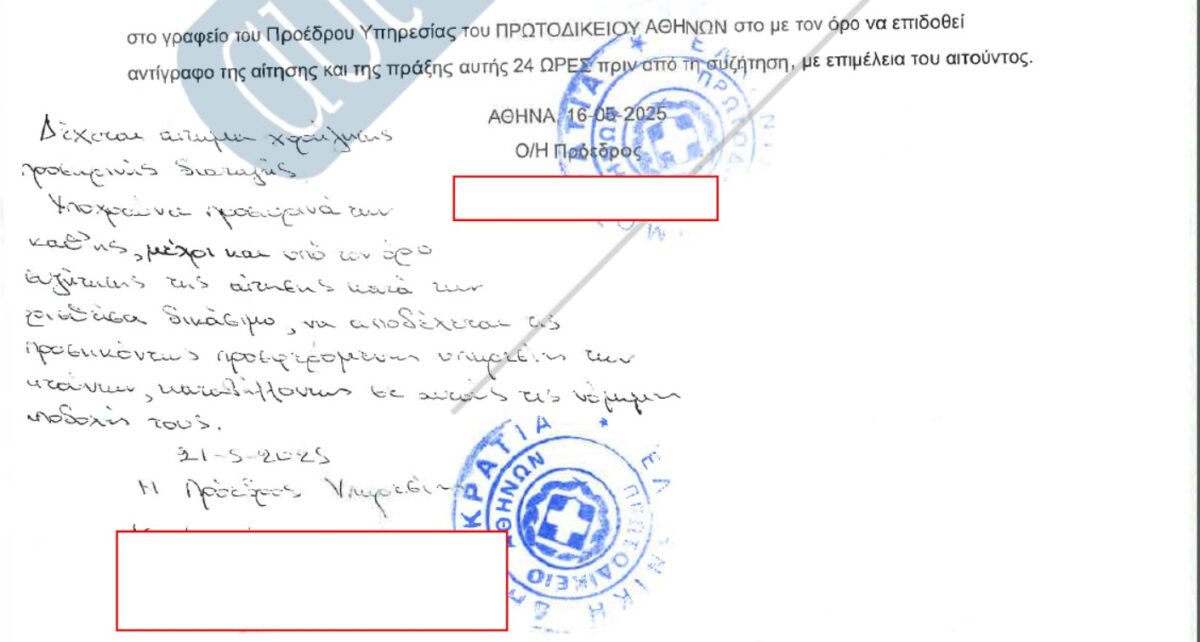 στο γραφείο του Προέδρου Υπηρεσίας του ΠΡΩΤΟΔΙΚΕΙΟΥ ΑΘΗΝΩΝ στο με τον όρο να επιδοθεί
αντίγραφο της αίτησης και της πράξης αυτής 24 ΩΡΕΣ πριν από τη συζήτηση, με επιμέλεια του αιτούντος.
ΑΘΗΝΑ, 16-05-2025
Ο/Η Πρόεδρος
Δέχεται αίτημα χορήγησης
προσωρινής διαταγής
Υποχρεώνει προσωρινά την
καθ'ης, μέχρι και υπό τον όρο
συζήτησης της αίτησης κατά την
ορισθείσα δικάσιμο, να αποδέχεται τις
προσηκόντως προσφερόμενες υπηρεσίες των
αιτούντων, καταβάλλοντας σε αυτούς τις νόμιμες
αποδοχές τους.
21-5-2025
Η Πρόεδρος Υπηρεσίας
ΠΡΩΤΟΔΙΚΕΙΟ ΑΘΗΝΩΝ